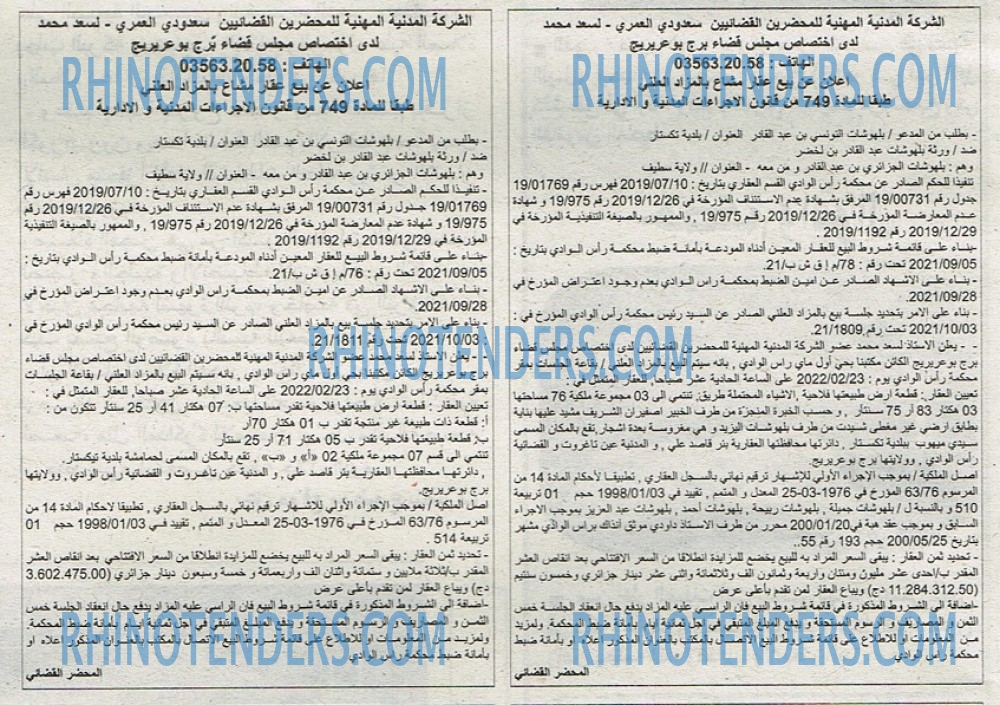 الشركة المدنية المهنية للمحضرين القضائيين سعدودي العمري - لسعد محمد
لدى اختصاص مجلس قضاء برج بوعريريج
الهاتف : 03563.20.58
اعلان عن بيع عقار مشاع بالمزاد العلني
طبقا للمادة 749 من قانون الاجراءات المدنية و الادارية
- بطلب من المدعو / بلهوشات التونسي بن عبد القادر العنوان / بلدية تكستار
ضد / ورثة بلهوشات عبد القادر بن لخضر
وهم : بلهوشات الجزائري بن عبد القادر و من معه - العنوان // ولاية سطيف
تنفيذا للحكم الصادر عن محكمة رأس الوادي القسم العقاري بتاريخ : 2019/07/10 فهرس رقم 19/01769
جدول رقم 19/00731 المرفق بشهادة عدم الاستئناف المؤرخة في 2019/12/26 رقم 19/975 و شهادة
عدم المعارضة المؤرخة في 2019/12/26 رقم 19/975 , والممهور بالصيغة التنفيذية المؤرخة في
2019/12/29 رقم 2019/1192
-بناء على قائمة شروط البيع للعقار المعين أدناه المودعة بأمانة ضبط محكمة رأس الوادي بتاريخ :
2021/09/05 تحت رقم : 78/م إ ق ش ب/21.
- بناء على الاشهاد الصادر عن امين الضبط بمحكمة راس الوادي بعدم وجود اعتراض المؤرخ في
2021/09/28.
- بناء على الامر بتحديد جلسة بيع بالمزاد العلني الصادر عن السيد رئيس محكمة رأس الوادي المؤرخ في :
2021/10/03 تحت رقم 21/1809.
- - يعلن الاستاذ لسعد محمد عضو الشركة المدنية المهنية للمحضرين القضائيين لدى اختصاص مجلس قضاء
برج بوعريريج الكائن مكتبنا بحي أول ماي راس الوادي , بانه سيتم البيع بالمزاد العلني / بقاعة الجلسات بمقر
محكمة رأس الوادي يوم : 2022/02/23 على الساعة الحادية عشر صباحا, للعقار المتمثل في :
تعيين العقار: قطعة ارض طبيعتها فلاحية الاشياء المحتملة طريق, تنتمي الى 03 مجموعة ملكية 76 مساحتها
03 هكتار 83 أر 75 سنتار , و حسب الخبرة المنجزة من طرف الخبير اصفيران الشريف مشيد عليها بناية
بطابق ارضي غير مغطى شيدت من طرف بلهوشات اليزيد و هي مغروسة بعدة اشجار, تقع بالمكان المسمى
سيدي ميهوب ببلدية تكستار , دائرتها محافظتها العقارية بئر قاصد علي , و المدنية عين تاغروت و القضائية
رأس الوادي , وولايتها برج بوعريريج.
اصل الملكية / بموجب الإجراء الأولي للاشهار ترقيم نهائي بالسجل العقاري , تطبيقا لأحكام المادة 14 من
المرسوم 63/76 المؤرخ في 1976-03-25 المعدل و المتمم , تقييد في 1998/01/03 حجم 01 تربيعة
510 و بالنسبة ل / بلهوشات جميلة , بلهوشات ربيحة , بلهوشات أحمد , بلهوشات عبد العزيز بموجب الاجراء
السابق و بموجب عقد هبة في200/01/20 محرر من طرف الاستاذ داودي موثق أنذاك براس الوادي مشهر
بتاريخ 200/05/25 حجم 193 رقم 55..
- تحديد ثمن العقار : يبقى السعر المراد به للبيع يخضع للمزايدة انطلاقا من السعر الافتتاحي بعد انقاص العشر
المقدر ب/احدى عشر مليون ومئتان واربعة وثمانون الف وثلاثمائة واثنى عشر دينار جزائري وخمسون سنتيم
(11.284.312.50 دج) ويباع العقار لمن تقدم بأعلى عرض
-اضافة الى الشروط المذكورة في قائمة شروط البيع فإن الراسي عليه المزاد يدفع حال انعقاد الجلسة خمس
الثمن و المصاريف و الرسوم المستحقة و يدفع المبلغ المتبقي في اجل ثمانية أيام بأمانة ضبط المحكمة, ولمزيد
من المعلومات او للاطلاع على قائمة شروط البيع الاتصال بالمكتب بالعنوان المذكور اعلاه او بأمانة ضبط
محكمة رأس الوادي.
المحضر القضائي
الشركة المدنية المهنية للمحضرين القضائيين سعدودي العمري - لسعد محمد
لدى اختصاص مجلس قضاء برج بوعريريج
الهاتف : 03563.20.58
اعلان عن بيع عقار مشاع بالمزاد العلني
طبقا للمادة 749 من قانون الاجراءات المدنية و الادارية
- بطلب من المدعو / بلهوشات التونسي بن عبد القادر العنوان / بلدية تكستار
ضد / ورثة بلهوشات عبد القادر بن لخضر
وهم : بلهوشات الجزائري بن عبد القادر و من معه - العنوان // ولاية سطيف
- تنفيذا للحكم الصادر عن محكمة رأس الوادي القسم العقاري بتاريخ : 2019/07/10 فهرس رقم
19/01769 جدول رقم 19/00731 المرفق بشهادة عدم الاستئناف المؤرخة في 2019/12/26 رقم
19/975 و شهادة عدم المعارضة المؤرخة في 2019/12/26 رقم 19/975 , والممهور بالصيغة التنفيذية
المؤرخة في 2019/12/29 رقم 2019/1192 .
-بناء على قائمة شروط البيع للعقار المعين أدناه المودعة بأمانة ضبط محكمة رأس الوادي بتاريخ :
2021/09/05 تحت رقم : 76/م إ ق ش ب/21.
- بناء على الاشهاد الصادر عن امين الضبط بمحكمة راس الوادي بعدم وجود اعتراض المؤرخ في
2021/09/28.
- بناء على الامر بتحديد جلسة بيع بالمزاد العلني الصادر عن السيد رئيس محكمة رأس الوادي المؤرخ في
: 2021/10/03 تحت رقم 21/1811.
- يعلن الاستاذ لسعد محمد عضو الشركة المدنية المهنية للمحضرين القضائيين لدى اختصاص مجلس قضاء
برج بوعريريج الكائن مكتبنا بحي أول ماي راس الوادي , بانه سيتم البيع بالمزاد العلني / بقاعة الجلسات
بمقر محكمة رأس الوادي يوم : 2022/02/23 على الساعة الحادية عشر صباحا, للعقار المتمثل في :
تعيين العقار : قطعة ارض طبيعتها فلاحية تقدر مساحتها ب: 07 هكتار 41 أر 25 سنتار تتكون من :
أ: قطعة ذات طبيعة غير منتجة تقدر ب 01 هكتار 70أر
ب: قطعة طبيعتها فلاحية تقدر ب 05 هكتار 71 أر 25 سنتار
تنتمي الى قسم 07 مجموعة ملكية 02 «أ» و «ب» , تقع بالمكان المسمى لحمامشة بلدية تيكستار.
, دائرتها محافظتها العقارية بئر قاصد علي , و المدنية عين تاغروت و القضائية رأس الوادي , وولايتها
برج بوعريريج.
اصل الملكية / بموجب الإجراء الأولي للاشهار ترقيم نهائي بالسجل العقاري , تطبيقا لاحكام المادة 14 من
المرسوم 63/76 المؤرخ في 1976-03-25 المعدل و المتمم , تقييد في 1998/01/03 حجم 01
تربيعة 514 .
- تحديد ثمن العقار : يبقى السعر المراد به للبيع يخضع للمزايدة انطلاقا من السعر الافتتاحي بعد انقاص العشر
المقدر ب/ثلاثة ملايين و ستمائة واثنان الف واربعمائة و خمسة وسبعون دينار جزائري (3.602.475.00
دج) ويباع العقار لمن تقدم بأعلى عرض
-اضافة الى الشروط المذكورة في قائمة شروط البيع فإن الراسي عليه المزاد يدفع حال انعقاد الجلسة خمس
الثمن و المصاريف و الرسوم المستحقة و يدفع المبلغ المتبقي في اجل ثمانية أيام بأمانة ضبط المحكمة,
ولمزيد من المعلومات او للاطلاع على قائمة شروط البيع الاتصال بالمكتب بالعنوان المذكور اعلاه او
بأمانة ضبط محكمة رأس الوادي.
المحضر القضائي
RHINOTENDERS.COM
RHINOTENDERS.COM
RHINOTENDERS.COM
RHINOTENDERS.COM
RHINOTENDERS.COM